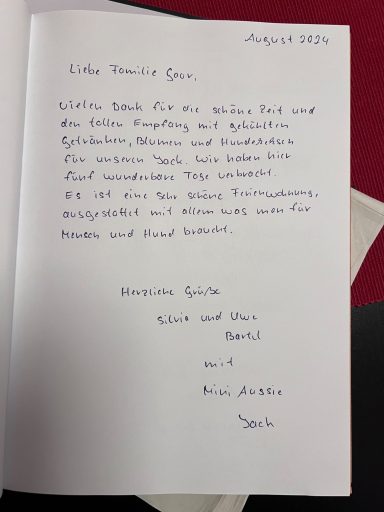 August 2024
Liebe Familie Goor,
vielen Dank für die schöne Zeit und
den tollen Empfang mit gekühlten
Getränken, Blumen und
für unseren Jack. Wir haben hier
fünf wunderbare Tage verbracht.
Es ist eine sehr schöne Ferienwohnung,
ausgestattet mit allem was man für
Mensch und Hund braucht.
Herzliche Grüße
Silvia und Uwe
mit
Mini Aussie
Jack